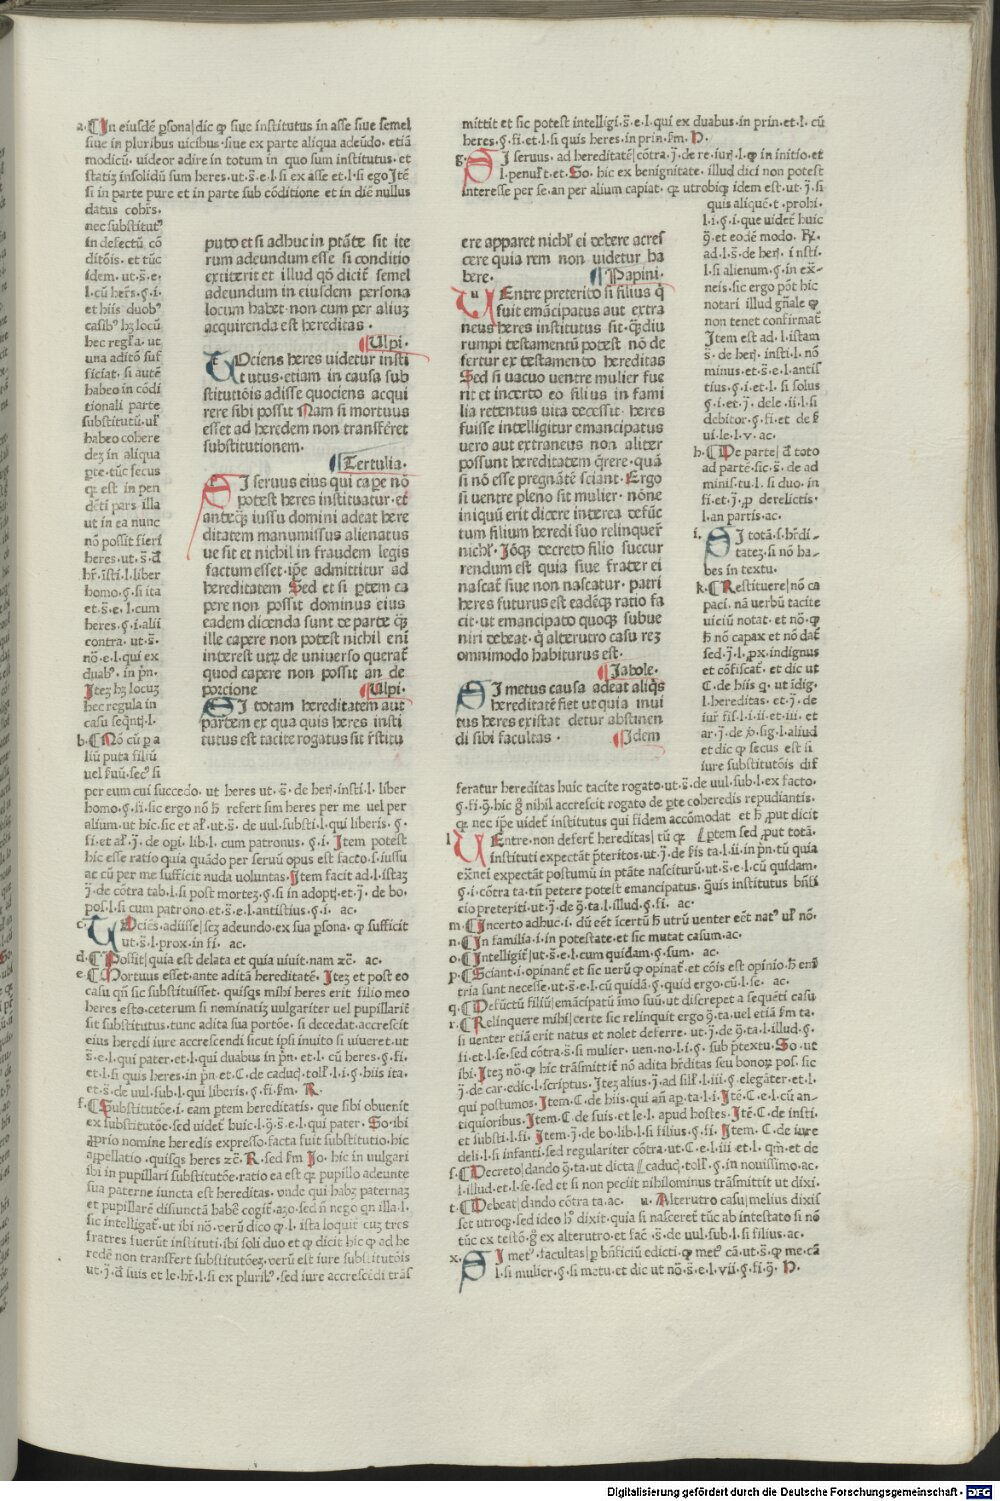 a. In eiusdē ꝑsona| dic ꝙ siue institutus in asse siue semel
siue in pluribus uicibus siue ex parte aliqua adeūdo. etiā
modicū. uideor adire in totum in quo sum institutus. et
statiʒ insolidū sum heres. ut. s̄. e. l. si ex asse et. l. si ego Itē
si in parte pure et in parte sub cōditione et in diē nullus
datus cohꝛs.
nec substitutꝰ
in defectū cō
ditōis. et tūc
idem. ut. s̄. e.
l. cū heꝛs. §. i.
et hiis duobꝰ
casibꝰ hʒ locū
hec regła. ut
una aditō suf
ficiat. si autē
habeo in cōdi
tionali parte
substitutū. uł
habeo cohere
deʒ in aliqua
ꝑte. tūc secus
qꝛ est in pen
dēti pars illa
ut in ea nunc
nō possit fieri
heres. ut. s̄. đ
hꝛ. isti. l. liber
homo. §. si ita
et. s̄. e. l. cum
heres. §. i. alii
contra. ut. s̄.
nō. e. l. qui ex
duabꝰ. in pꝛn.
Iteʒ hʒ locuʒ
hec regula in
casu seqntj. l.
b. Nō cū ꝑ a
liū puta filiū
uel ꝼuū. secꝰ si
per eum cui succedo. ut heres ut. s̄. de herj. insti. l. liber
homo. §. fi. sic ergo nō ħ refert sim heres per me uel per
alium. ut hic. sic et ał. ut. s̄. de uul. substi. l. qui liberis. §.
fi. et ał. j̄. de opi. lib. l. cum patronus. §. i. Item potest
hic esse ratio quia quādo per seruū opus est facto. s. iussu
ac cū per me sufficit nuda uoluntas. Item facit ad. l. istaʒ
j̄. de cōtra tab. l. si post morteʒ. §. si in adoptj. et. j̄. de bo.
pos. l. si cum patrono. et. s̄. e. l. antistius. §. i. ac.
c. TOciēs. adiisse| scʒ adeundo. ex sua ꝑsona. ꝙ sufficit
ut. s̄. l. prox. in fi. ac.
d. Possit| quia est delata et quia uiuit. nam ⁊c̄. ac.
e. Mortuus esset. ante aditā hereditatē. Iteʒ et post eo
casu qñ sic substituisset. quisqꝫ mihi heres erit filio meo
heres esto. ceterum si nominatiʒ uulgariter uel pupillariť
sit substitutus. tunc adita sua portōe. si decedat. accrescit
eius heredi iure accrescendi sicut ipsi inuito si uiueret. ut
s̄. e. l. qui pater. et. l. qui duabus in pꝛn. et. l. cū heres. §. fi.
et. l. si quis heres in pꝛn et. C. de caducj. tolł. l. i. §. hiis ita.
et. s̄. de uul. sub. l. qui liberis. §. fi. ẜm. R.
f. Substitutōe. i. eam ꝑtem hereditatis. que sibi obuenit
ex substitutōe. sed uideť huic. l. ꝯ. s̄. e. l. qui pater. So. ibi
aꝑꝑrio nomine heredis expresso. facta fuit substitutio. hic
aꝑꝑellatio. quisqꝫ heres ⁊c̄. R. sed ẜm Jo. hic in uulgari
ibi in pupillari substitutōe. ratio ea est qꝛ pupillo adeunte
sua paterne iuncta est hereditas. vnde qui habʒ paternaʒ
et pupillarē disiunctā habē cogiť. aʒo. sed ñ nego qn illa. l.
sic intelligať. ut ibi nō. verū dico ꝙ. l. ista loquiť cuʒ tres
fratres fuerūt instituti. ibi soli duo et ꝙ dicit hic ꝙ ad he
redē non transfert substitutōeʒ. verū est iure substitutōis
ut. j̄. đ suis et le. hꝛ. l. si ex pluribꝰ. sed iure accrescēdi trās
puto et si adhuc in ptāte sit ite
rum adeundum esse si conditio
extiterit et illud qđ dicit semel
adeundum in eiusdem persona
locum habet. non cum per aliuʒ
acquirenda est hereditas.
Ulpi.
TOciens heres uidetur insti
tutus. etiam in causa sub
stitutiōis adisse quociens acqui
rere sibi possit Nam si mortuus
esset ad heredem non transferet
substitutionem.
Tertulia.
SI seruus eius qui caꝑe nō
potest heres instituatur. et
anteqꝫ iussu domini adeat here
ditatem manumissus alienatus
ue sit et nichil in fraudem legis
factum esset. ipe admittitur ad
hereditatem Sed et si ꝑtem ca
pere non possit dominus eius
eadem dicenda sunt de parte qꝫ
ille capere non potest nichil eni
interest utrʒ de universo querať
quod capere non possit an de
porcione
Ulpi.
SI totam hereditatem aut
partem ex qua quis heres insti
tutus est tacite rogatus sit ꝛstitu
mittit et sic potest intelligi. s̄. e. l. qui ex duabus. in prin. et. l. cū
heres. §. fi. et. l. si quis heres in prin. ẜm. H.
g. SI seruus. ad hereditatē| cōtra. j̄. de re. iurj. l. ꝙ in initio. et
l. penult. et. So. hic ex benignitate. illud dici non potest
interesse per se. an per alium capiat. qꝛ utrobiqꝫ idem est. ut. j̄. si
quis aliquē. t. prohi.
l. i. §. i. que uideť huic
ꝯ. et eodē modo. R.
ad. l. s̄. de herj. insti.
l. si alienum. §. in ex-
neis. sic ergo pōt hic
notari illud gn̄ale ꝙ
non tenet confirmať
Item est ad. l. istam
s̄. de herj. insti. l. nō
minus. et. s̄. e. l. antis
tius. §. i. et. l. si solus
§. i. et. j̄. dele. ii. l. si
debitor. §. fi. et de ẜ
ui. le. l. v. ac.
h. De parte| đ toto
ad partē. sic. s̄. de ad
minis. tu. l. si duo. in
fi. et. j̄. ꝓ derelictis.
l. an partis. ac.
i. SI totā. s. hꝛdi-
tateʒ. si nō ha-
bes in textu.
k. Restituere| nō ca
paci. nā uerbū tacite
uiciū notat. et nō. ꝙ
ħ nō capax et nō dať
sed. j̄. l. ꝓx. indignus
et cōfiscať. et dic ut
C. de hiis q. ut idig.
l. hereditas. et. j̄. de
iuꝛ fis. l. i. ii. et. iii. et
ar. j̄. de ꝓ. sig. l. aliud
et dic ꝙ secus est si
iure substitutōis dif
feratur hereditas huic tacite rogato. ut. s̄. de uul. sub. l. ex facto.
§. fi. ꝯ. hic ǧ nihil accrescit rogato de ꝑte coheredis repudiantis.
qꝛ nec ipe uideť institutus qui fidem accōmodat et ħ ꝓut dicit
l. VEntre. non deferť hereditas| tū qꝛ ꝑtem sed ꝓut totā.
instituti expectāt ꝑteritos. ut. j̄. de ẜis ta. l. ii. in pꝛn. tū quia
ex̄nei expectāt postumū in ptāte nasciturū. ut. s̄. e. l. cū quidam.
§. i. cōtra ta. tn̄ petere potest emancipatus. quis institutus bn̄fi
cio preteriti. ut. j̄. de ꝯ. ta. l. illud. §. fi. ac.
m. Incerto adhuc. i. dū eēt icertū ħ utrū uenter eēt natꝰ uł nō.
n. In familia. i. in potestate. et sic mutat casum. ac.
o. Intelligiť| ut. s̄. e. l. cum quidam. §. sum. ac.
p. Sciant. i. opinanť et sic uerū ꝙ opinať. et cōis est opinio. ħ enī
tria sunt necesse. ut. s̄. e. l. cū quidā. §. quid ergo. cū. l. se. ac.
q. Defūctū filiū| emācipatū imo suū. ut discrepet a sequēti casu
r. Relinquere mihi| certe sic relinquit ergo ꝯ. ta. uel etiā ẜm ta.
si uenter etiā erit natus et nolet deferre. ut. j̄. de ꝯ. ta. l. illud. §.
fi. et. l. se. sed cōtra. s̄. si mulier. uen. no. l. i. §. sub ꝑtextu. So. ut
ibi. Iteʒ nō. ꝙ hic trāsmittiť nō adita hꝛditas seu bonoꝝ pos. sic
j̄. de car. edic. l. scriptus. Iteʒ alius. j̄. ad sił. l. iii. §. elegāter. et. l.
qui postumos. Item. C. de hiis. qui añ aꝑ. ta. l. i. Itē. C. e. l. cū an-
tiquioribus. Item. C. de suis et le. l. apud hostes. Itē. C. de insti.
et substi. l. fi. Item. j̄. de bo. lib. l. si filius. §. fi. Item. C. de iure
deli. l. si infanti. sed regulariter cōtra. ut. C. e. l. iii. et. l. qm̄. et de
s. Decreto| dando ꝯ. ta. ut dicta l. caducj. tolł. §. in nouissimo. ac.
l. illud. et. l. se. sed et si non peciit nihilominus trāsmittit ut dixi.
t. Debeat| dando cōtra ta. ac. u. Alterutro casu| melius dixis
set utroqꝫ. sed ideo hꝰ dixit. quia si nasceret tūc ab intestato si nō
tūc ex testō. ǧ ex alterutro. et fac̄. s̄. de uul. sub. l. si filius. ac.
x. SI metꝰ. facultas| ꝑ bn̄ficiū edicti. ꝙ metꝰ cā. ut. s̄. ꝙ me. cā
l. si mulier. §. si metu. et dic ut nō. s̄. e. l. vii. §. fi. ꝯ. H.
ere apparet nichł ei debere acres
cere quia rem non uidetur ha
bere.
Papini.
VEntre preterito si filius q̄
fuit emācipatus aut extra
neus heres institutus sit. qꝫdiu
rumpi testamentū potest nō de
fertur ex testamento hereditas
Sed si uacuo uentre mulier fue
rit et incerto eo filius in fami
lia retentus uita decessit heres
fuisse intelligitur emancipatus
uero aut extraneus non aliter
possunt hereditatem q̄rere. quā
si nō esse pregnātē sciant. Ergo
si uentre pleno sit mulier. nōne
iniquū erit dicere interea defūc
tum filium heredi suo relinquer
nichł. Iđqꝫ decreto filio succur
rendum est quia siue frater ei
nascať siue non nascatur. patri
heres futurus est eadēqꝫ ratio fa
cit. ut emancipato quoqꝫ subue
niri debeat. q̄ alterutro casu reʒ
omnimodo habiturus est.
Jabole.
SI metus causa adeat aliq̄s
hereditatē fiet ut quia inui
tus heres existat detur abstinen
di sibi facultas.
Idem
Digitalisierung gefördert durch die Deutsche Forschungsgemeinschaft - DFG